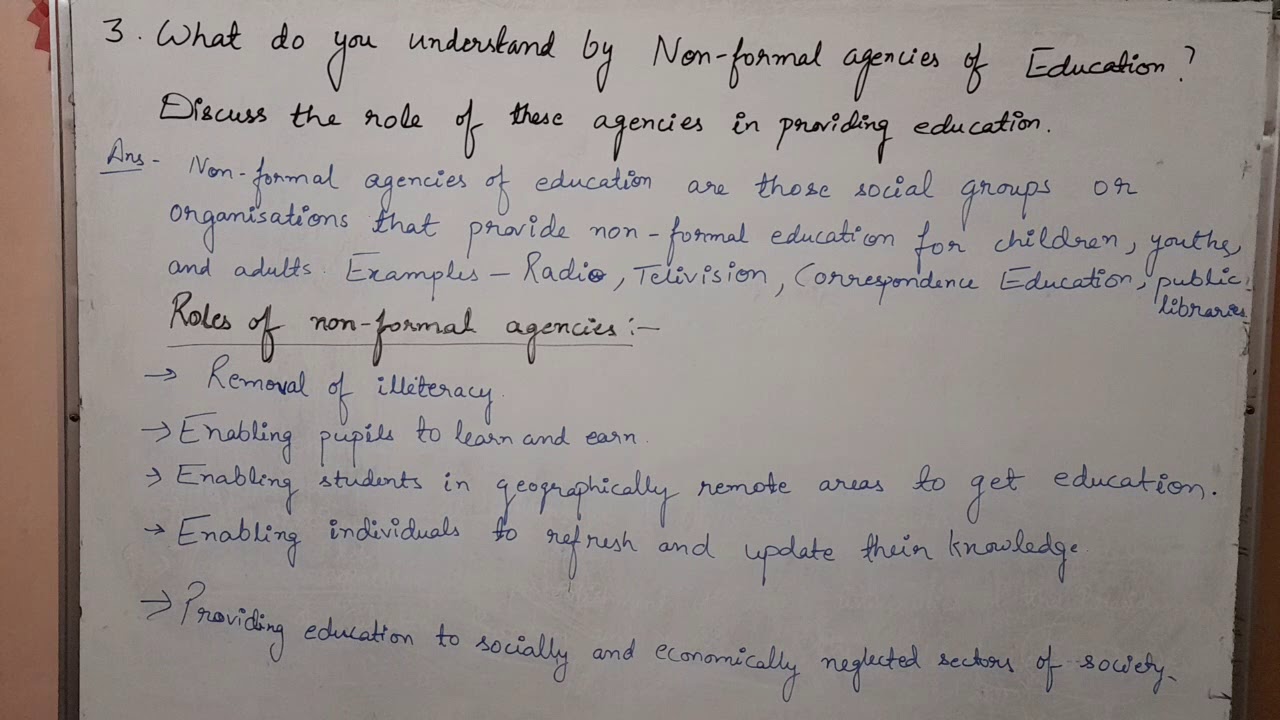 3. What do you understand by Non-formal agencies of Education?
Discuss the role of these agencies in providing education.
Ans- Non-formal agencies of education are those social groups or
organisations that provide non-formal education for children, youths,
and adults. Examples – Radio, Telivision, Correspondence Education, public
libraries
Roles of non-formal agencies:–
→ Removal of illiteracy.
→ Enabling pupils to learn and earn.
→ Enabling students in geographically remote areas to get education.
→ Enabling individuals to refresh and update their knowledge.
→ Providing education to socially and economically neglected sectors of society.